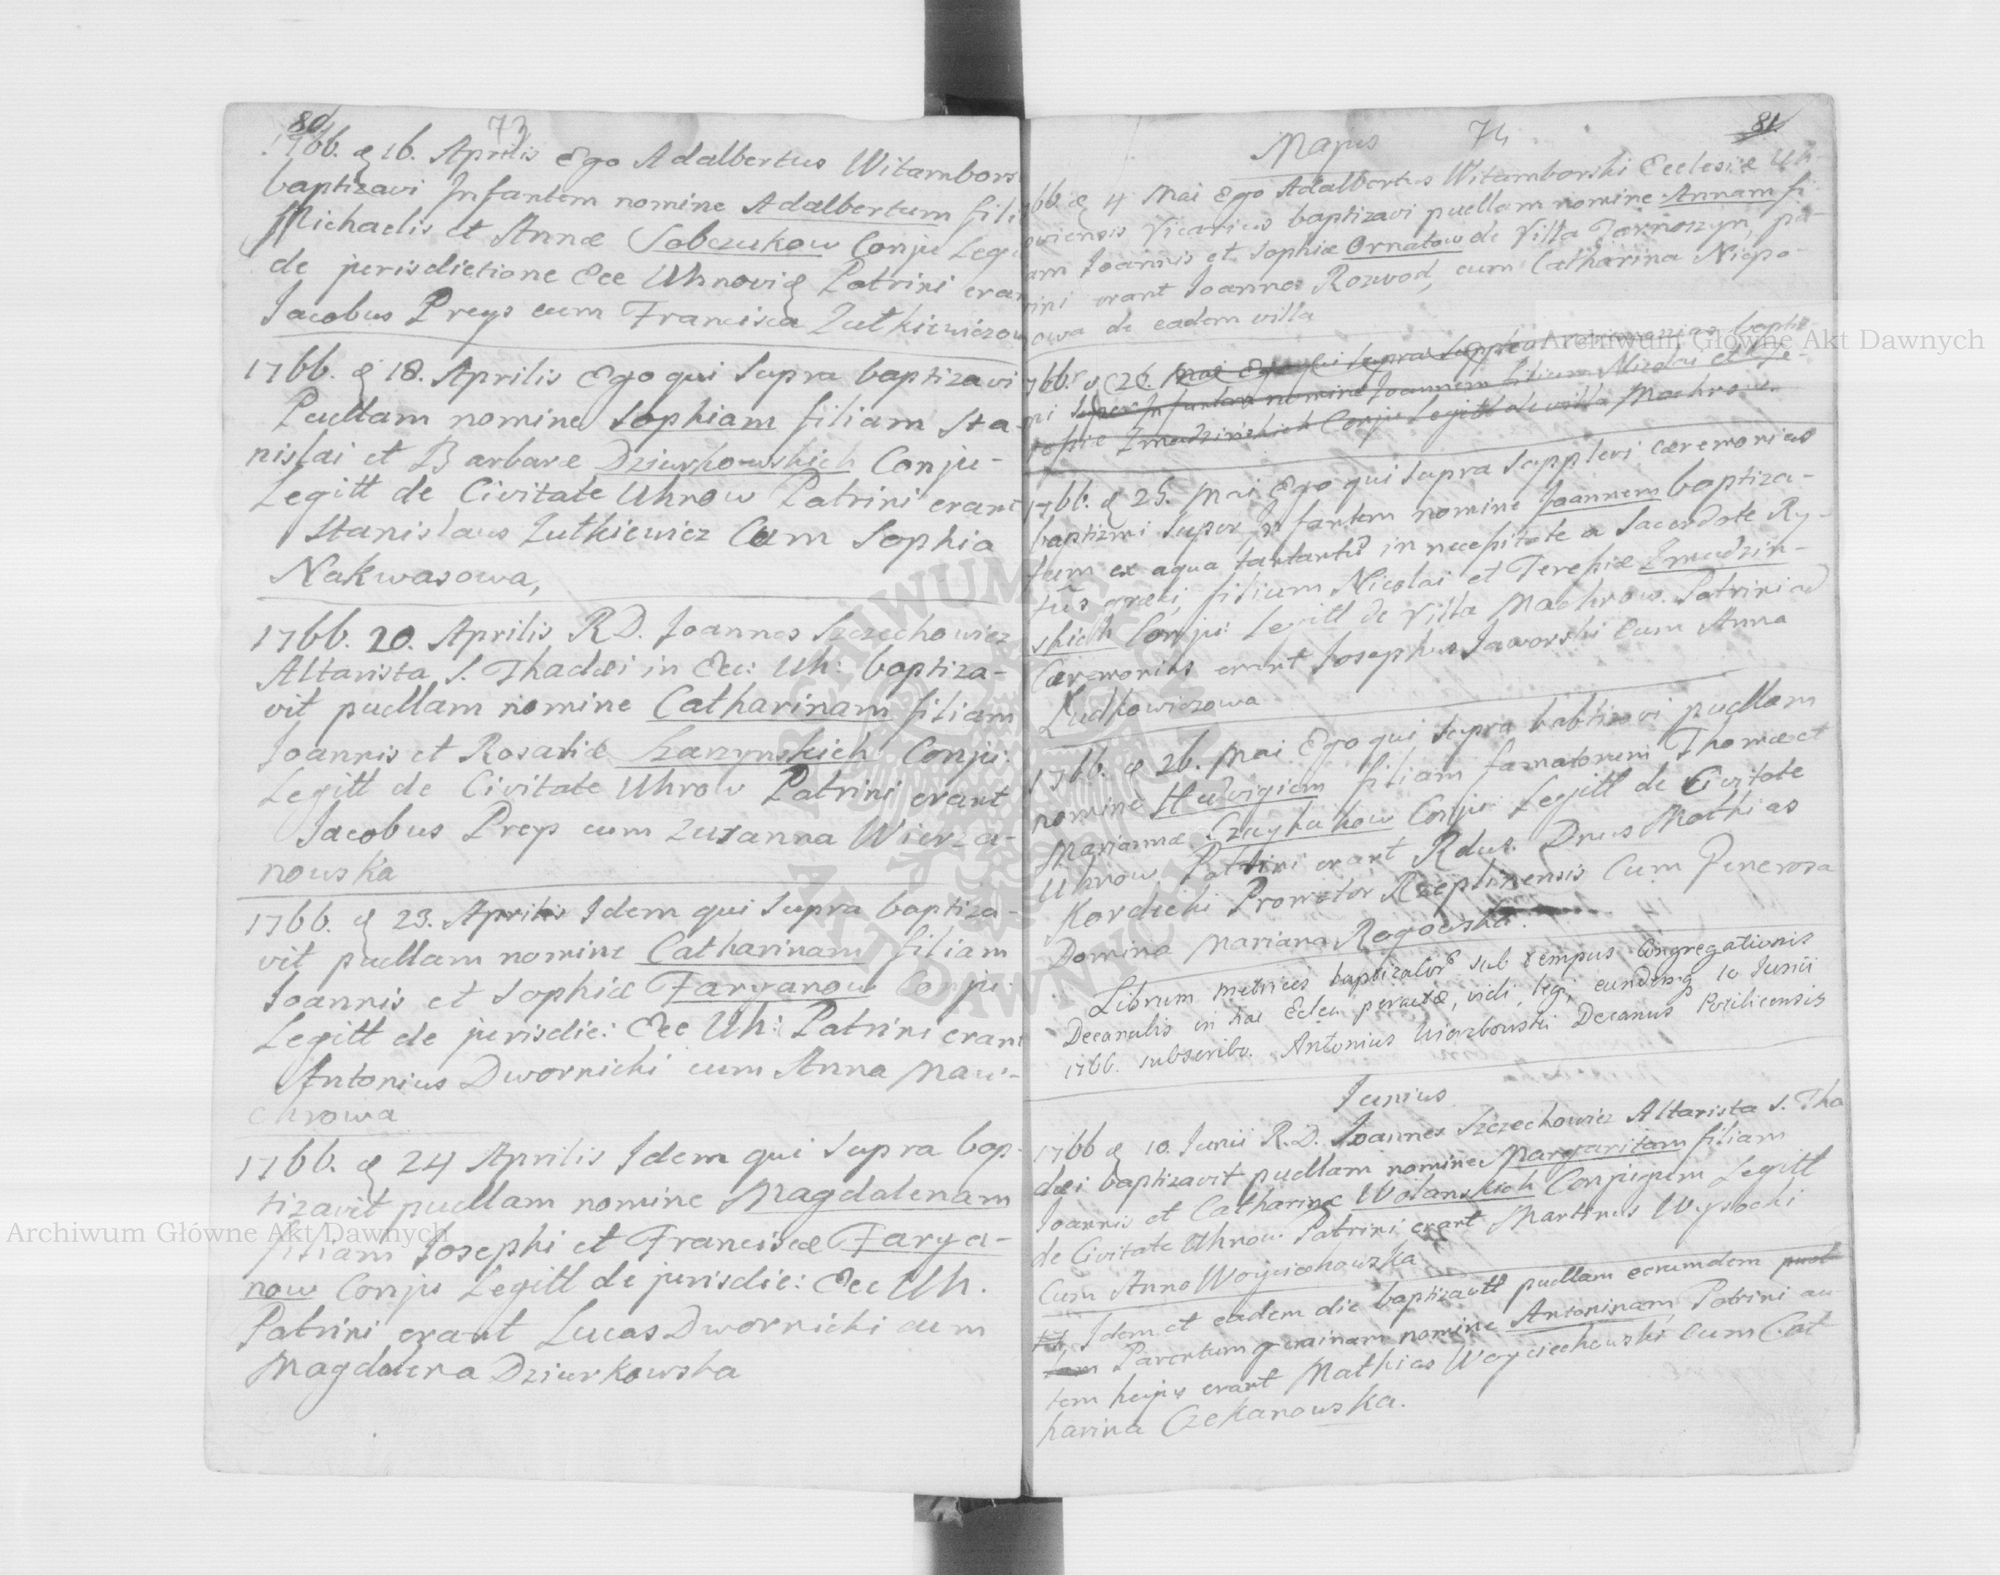 80 73
1766. d 16. Aprilis Ego Adalbertus Witambors
baptizavi Infantem nomine Adalbertum fili
Michaelis et Annæ Sobczukow Conju Legi
de jurisdictione Ecc Uhnoviæ Patrini eran
Jacobus Preys cum Francisca Zutkiewiczow
1766. d 18. Aprilis Ego qui supra baptizavi
Puellam nomine Sophiam filiam Sta-
nislai et Barbaræ Dziurkowskich Conju-
Legitt de Civitate Uhnow Patrini erant
Stanislaus Zutkiewicz Cum Sophia
Nakwasowa,
1766. 20. Aprilis R.D. Joannes Szczechowicz
Altarista S. Thadæi in Ecc: Uh: baptiza-
vit puellam nomine Catharinam filiam
Joannis et Rosaliæ Conju:
Legitt de Civitate Uhnow Patrini erant
Jacobus Preys cum Zuzanna Wierza-
nowska
1766. d 23. Aprilis Idem qui supra baptiza-
vit puellam nomine Catharinam filiam
Joannis et Sophiæ Faryanow Conju:
Legitt de jurisdic: Ecc Uh: Patrini erant
Antonius Dwornicki cum Anna Maw-
chrowa
1766. d 24 Aprilis Idem qui supra bap-
tizavit puellam nomine Magdalenam
filiam Josephi et Franciscæ Farya-
now Conju Legitt de jurisdic: Ecc Uh.
Patrini erant Lucas Dwornicki cum
Magdalena Dziurkowska
Majus 74 81
66 d 4 Mai Ego Adalbertus Witamborski Ecclesiæ Uh-
noviensis Vicarius baptizavi puellam nomine Annam fi-
am Joannis et Sophiæ Ornatow de Villa Tarnoszyn, pa-
rini erant Joannes Rozwod, cum Catharina Niepo-
owa de eadem villa
766. d 26. Mai Ego qui supra supplevi ceremonias bapti-
mi super Infantem nomine Joannem filium Nicolai et Te-
resiæ Zmudzinskich Conju Legitt de villa Machrow.
1766. d 25. Mai Ego qui supra supplevi cæremonias
baptizmi super Infantem nomine Joannem baptiza-
tum ex aqua tantantũ in necessitate a Sacerdote Ry-
tũs græci, filium Nicolai et Teresiæ Zmudzin-
skich Conju: Legitt de Villa Machrow. Patrini ad
Cæremonias erant Josephus Jaworski Cum Anna
Ludkowiczowa
1766. d 26. Mai Ego qui supra babtizavi puellam
nomine Hedvigiem filiam famatorum Thomæ et
Mariannæ Conju: Legitt de Civitate
Uhnow Patrini erant Rdus. Dnus Mathias
Kordicki Promotor Rzeplinensis Cum Generosa
Domina Mariana Rogowska.
Librum metrices baptizator̃ sub tempus Congregationis
Decanalis in hac Eccla peractæ, vidi, legi, eundemq 10 Junii
1766. subscribo. Antonius Wiazbowski Decanus Potilicensis
Junius
1766 d 10. Junii R.D. Joannes Szczechowicz Altarista S. Tha
dæi baptizavit puellam nomine Margaritam filiam
Joannis et Catharinæ Wolanskich Conjugum Legitt
de Civitate Uhnow Patrini erant Martinus Wysocki
Cum Anna Woyciechowska
Idem et eadem die baptizavit puellam eorumdem puel
lam Parentum geminam nomine Antoninam, Patrini au
tem hujus erant Mathias Woyciechowski cum Cat
harina Czekanowska.
Archiwum Główne Akt Dawnych
Archiwum Główne Akt Dawnych
ARCHIWUM GŁÓWNE
AKT DAWNYCH